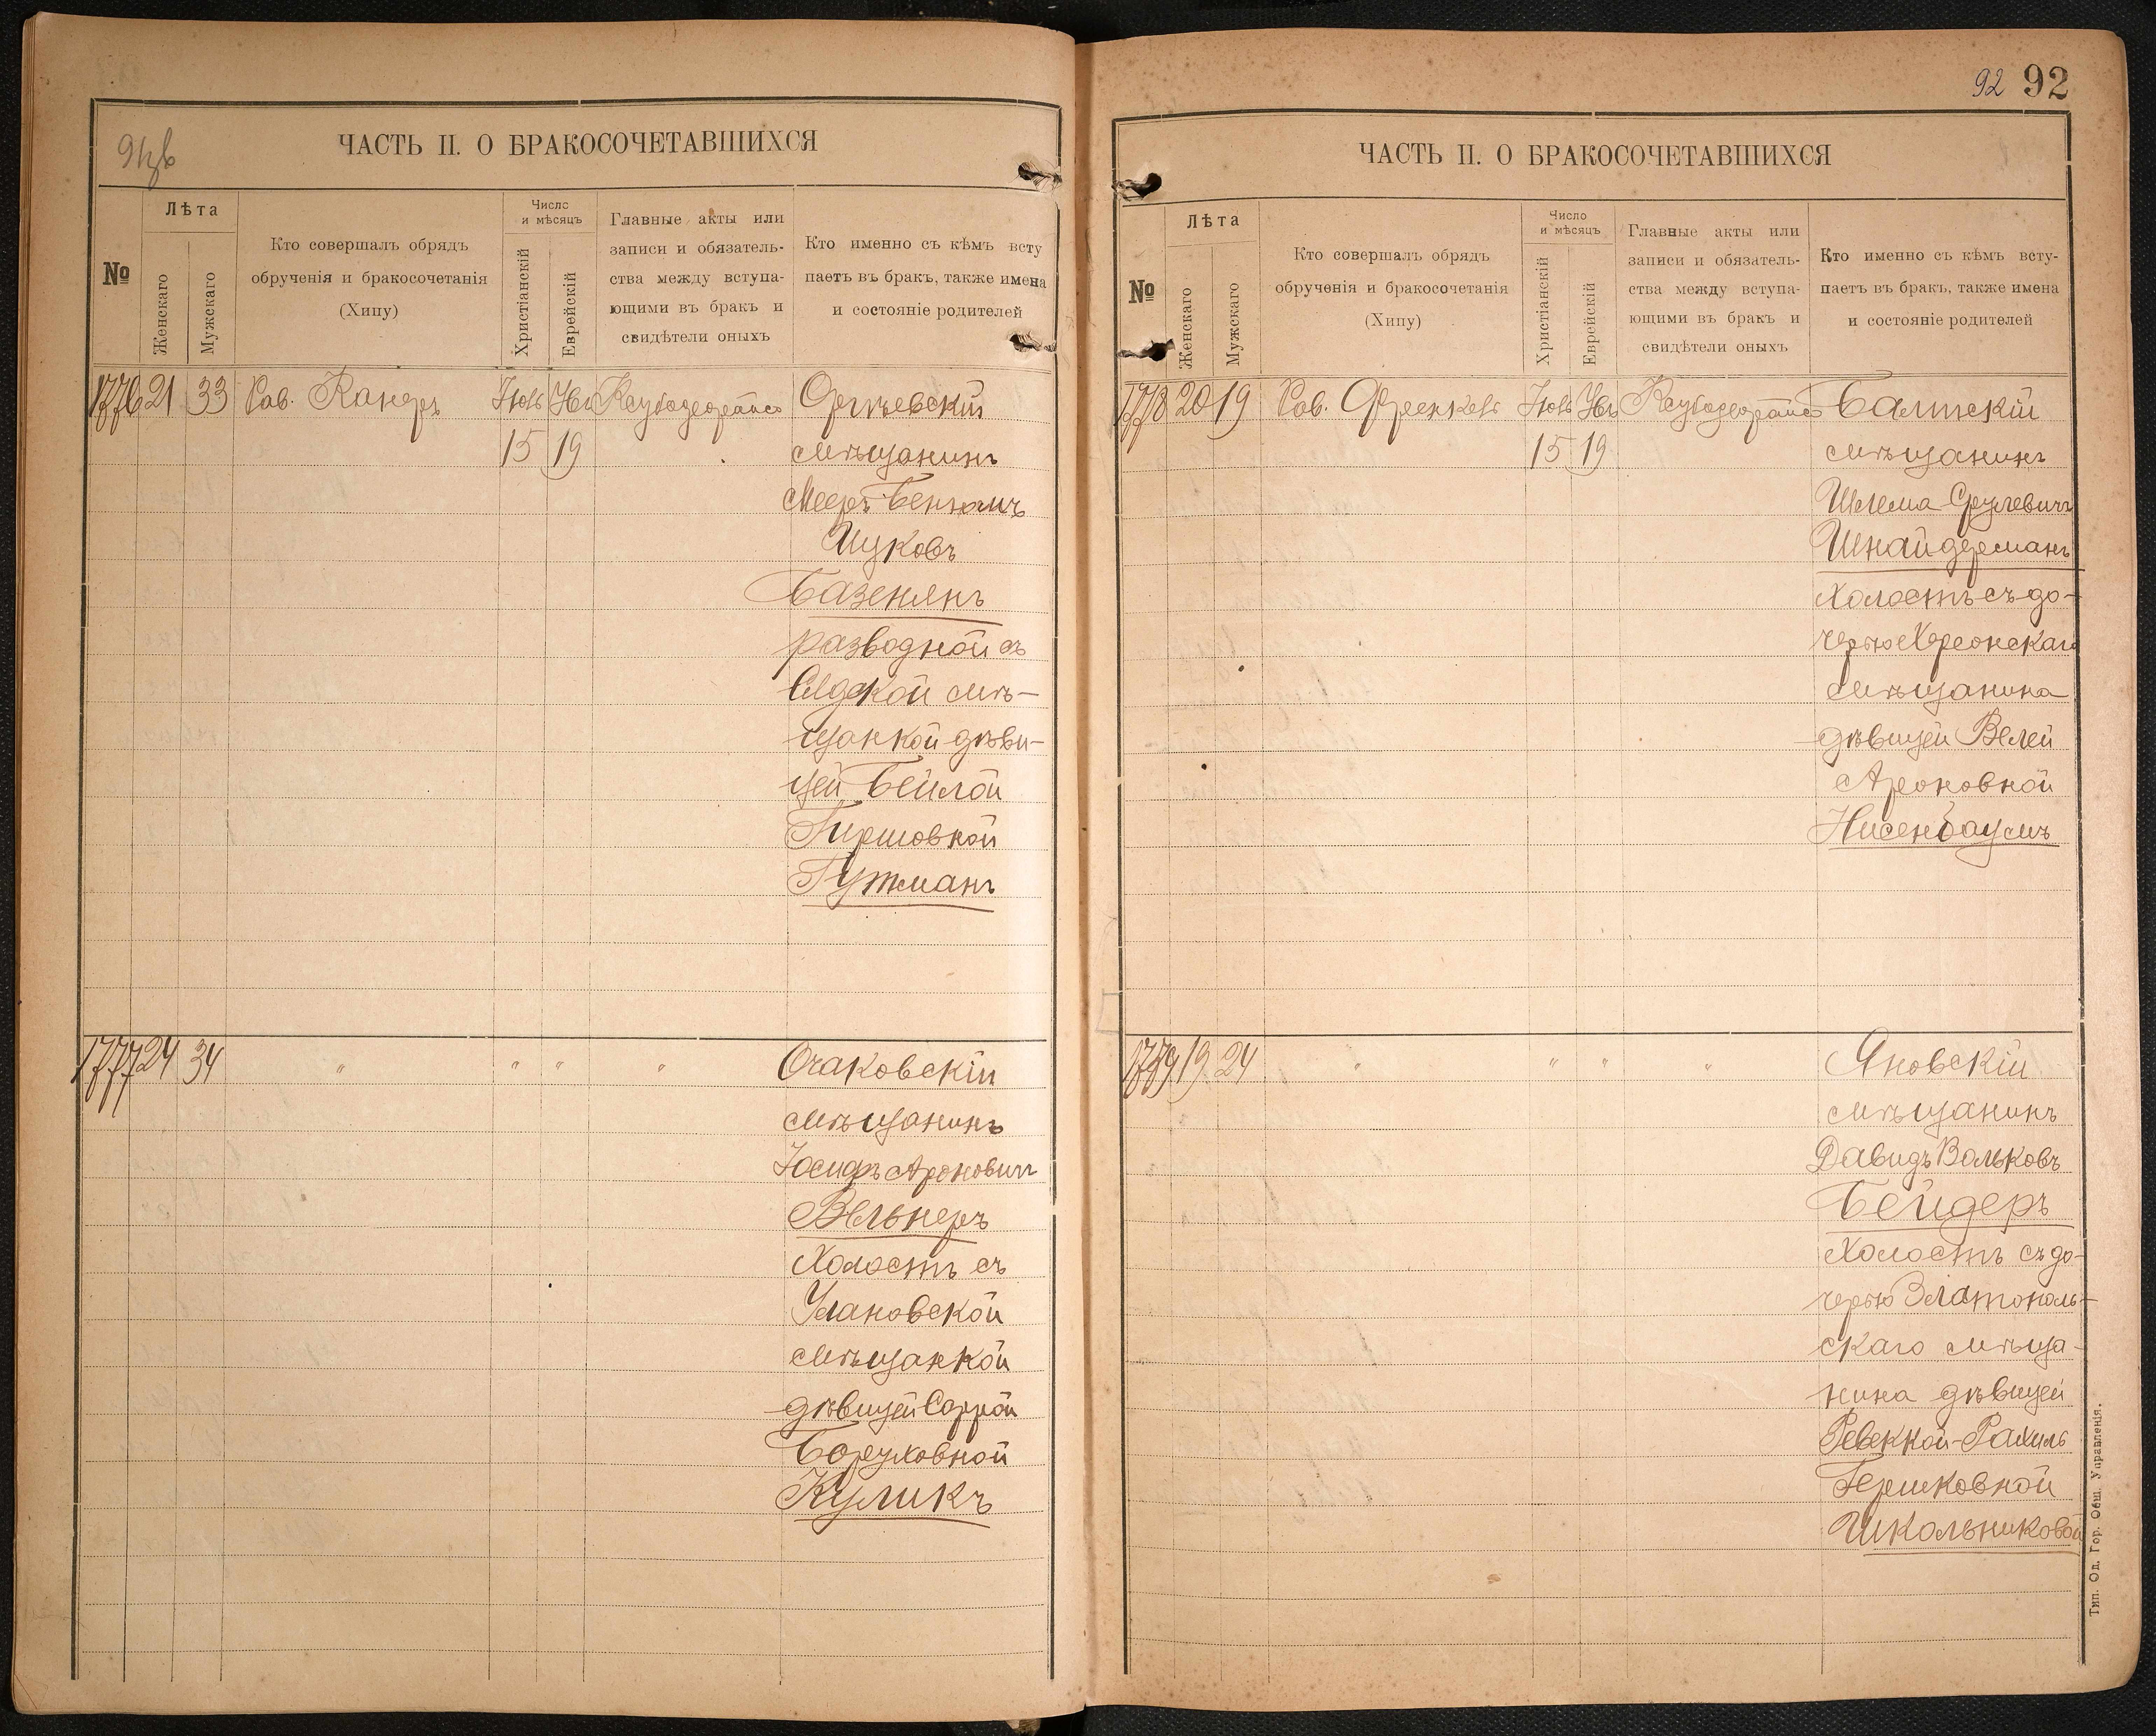 91 об
ЧАСТЬ II. О БРАКОСОЧЕТАВШИХСЯ
№
Лѣта
Женскаго
Мужескаго
Кто совершалъ обрядъ
обрученія и бракосочетанія
(Хипу)
Число
и мѣсяцъ
Христіанскій
Еврейскій
Главные акты или
записи и обязатель-
ства между вступа-
ющими въ бракъ и
свидѣтели оныхъ
Кто именно съ кѣмъ всту
паетъ въ бракъ, также имена
и состояніе родителей
1776 21 33 Рав. Канеръ
15 19
Оргѣевскій
мѣщанинъ
Мееръ Беньомъ
Ицковъ
Базенянъ
разводной съ
Лидской мѣ-
щанкой дѣви-
цей Бейлой
Гиршовной
Гутманъ
1777 24 34 " " " "
Очаковскій
мѣщанинъ
Іосифъ Ароновичъ
Вельнеръ
Холостъ съ
Улановской
мѣщанкой
дѣвицей Саррой
Боруховной
Куликъ
92 92
ЧАСТЬ II. О БРАКОСОЧЕТАВШИХСЯ
№
Лѣта
Женскаго
Мужескаго
Кто совершалъ обрядъ
обрученія и бракосочетанія
(Хипу)
Число
и мѣсяцъ
Христіанскій
Еврейскій
Главные акты или
записи и обязатель-
ства между вступа-
ющими въ бракъ и
свидѣтели оныхъ
Кто именно съ кѣмъ всту-
паетъ въ бракъ, также имена
и состояніе родителей
1778 20 19 Рав. Френкель
15 19
Балтскій
мѣщанинъ
Шлема Срулевичъ
Шнайдерманъ
Холостъ съ до-
черью Херсонскаго
мѣщанина
дѣвицей Велей
Ароновной
Нисенбаумъ
1779 19 24 " " " "
Яновскій
мѣщанинъ
Давидъ Вольковъ
Бейдеръ
Холостъ съ до-
черью Златополь-
скаго мѣща-
нина дѣвицей
Ревеккой-Рахиль
Гершковной
Школьниковой
Тип. Од. Гор. Общ. Управленія.